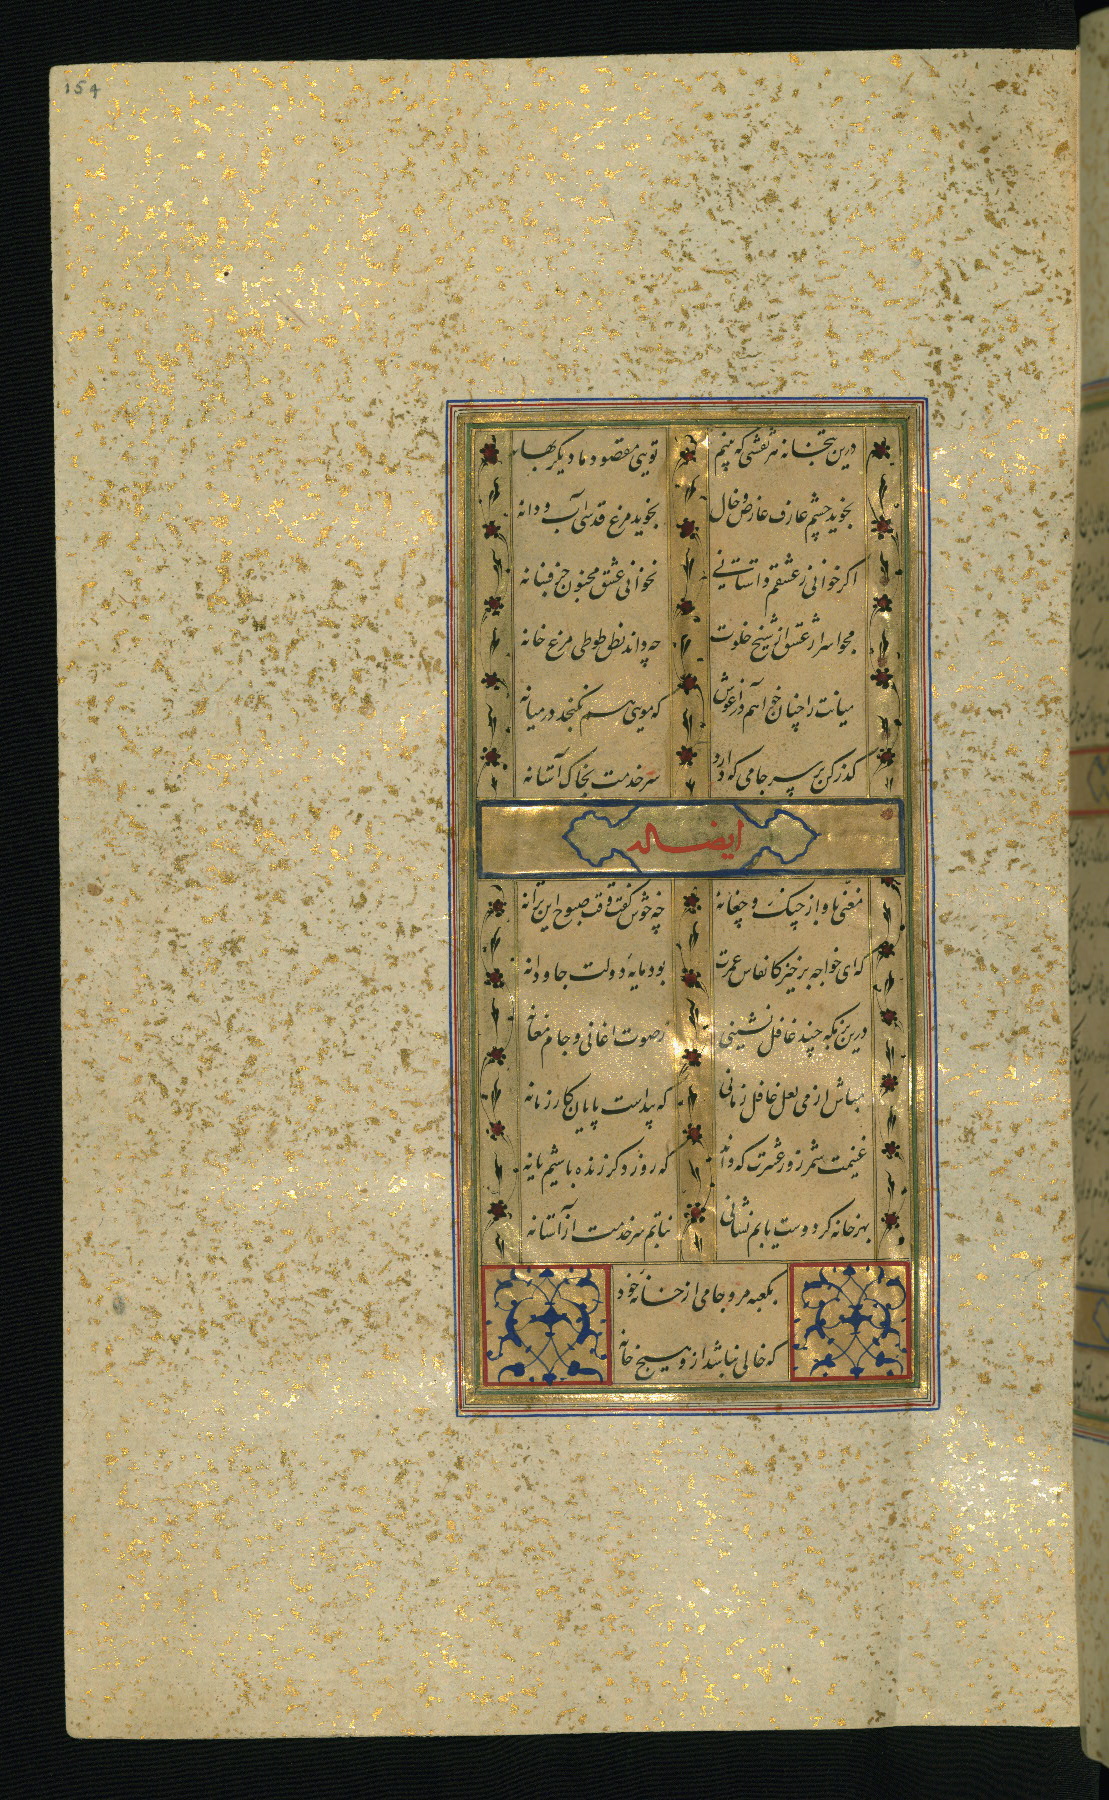 154
درین بتخانه هر نقشی که بینم
تویی مقصود ما دیگر بهانه
بجوید چشم عارف عارض و خال
بجوید مرغ قدسی آب و دانه
اگر خوانی ز عشقم داستانی
نخوانی عشق مجنون جز فسانه
مجو اسرار عشق از شیخ خلوت
چه داند نطق طوطی مرغ خانه
میانت را چنان خواهم در آغوش
که مویی هم نگنجد در میانه
گذر کن بر سر جامی که دارد
سر خدمت بخاک آستانه
ایضا له
مغنی باواز چنگ و چغانه
چه خوش گفت وقت صبوح این ترانه
که ای خواجه برخیز کانفاس عمرت
بود مایه دولت جاودانه
درین بزمگه چند غافل نشینی
ز صوت اغانی و جام مغانه
مباش از می لعل غافل زمانی
که پیداست پایان کار زمانه
غنیمت شمر روز عشرت که داند
که روز دگر زنده باشیم یا نه
بهر خانه کز دوست یابم نشانی
نتابم سر خدمت از آستانه
بکعبه مرو جامی از خانه خود
که خالی نباشد ازو هیچ خانه